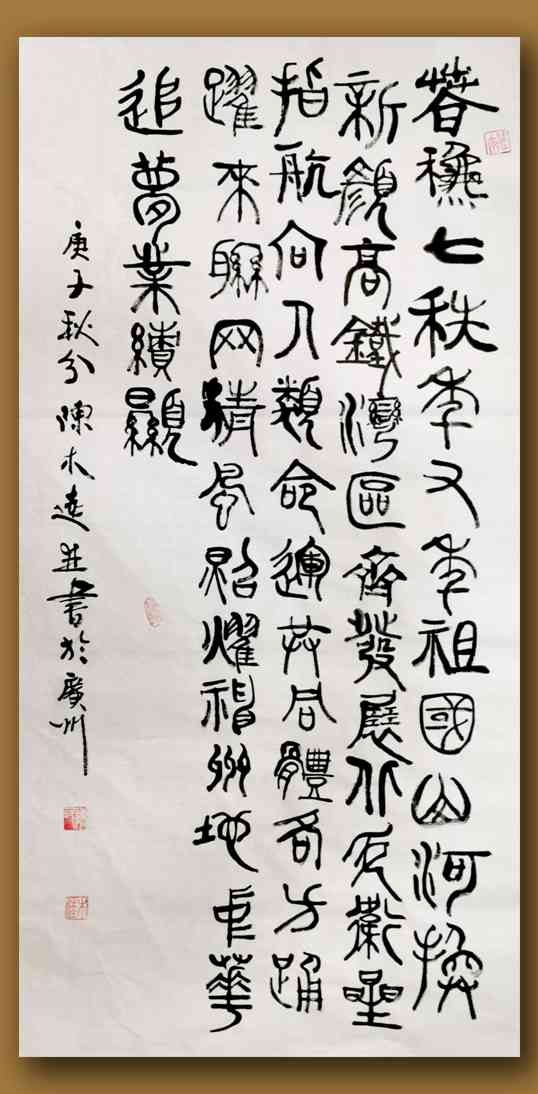 春穐七秩年又年祖國山河換
新顏高鐵灣區齊發展北斗衛星
指航向人類命運共同體各方踊
躍來聯网清風照耀神州地中華
追夢業績顯
庚子秋分陳木逵並書於廣州